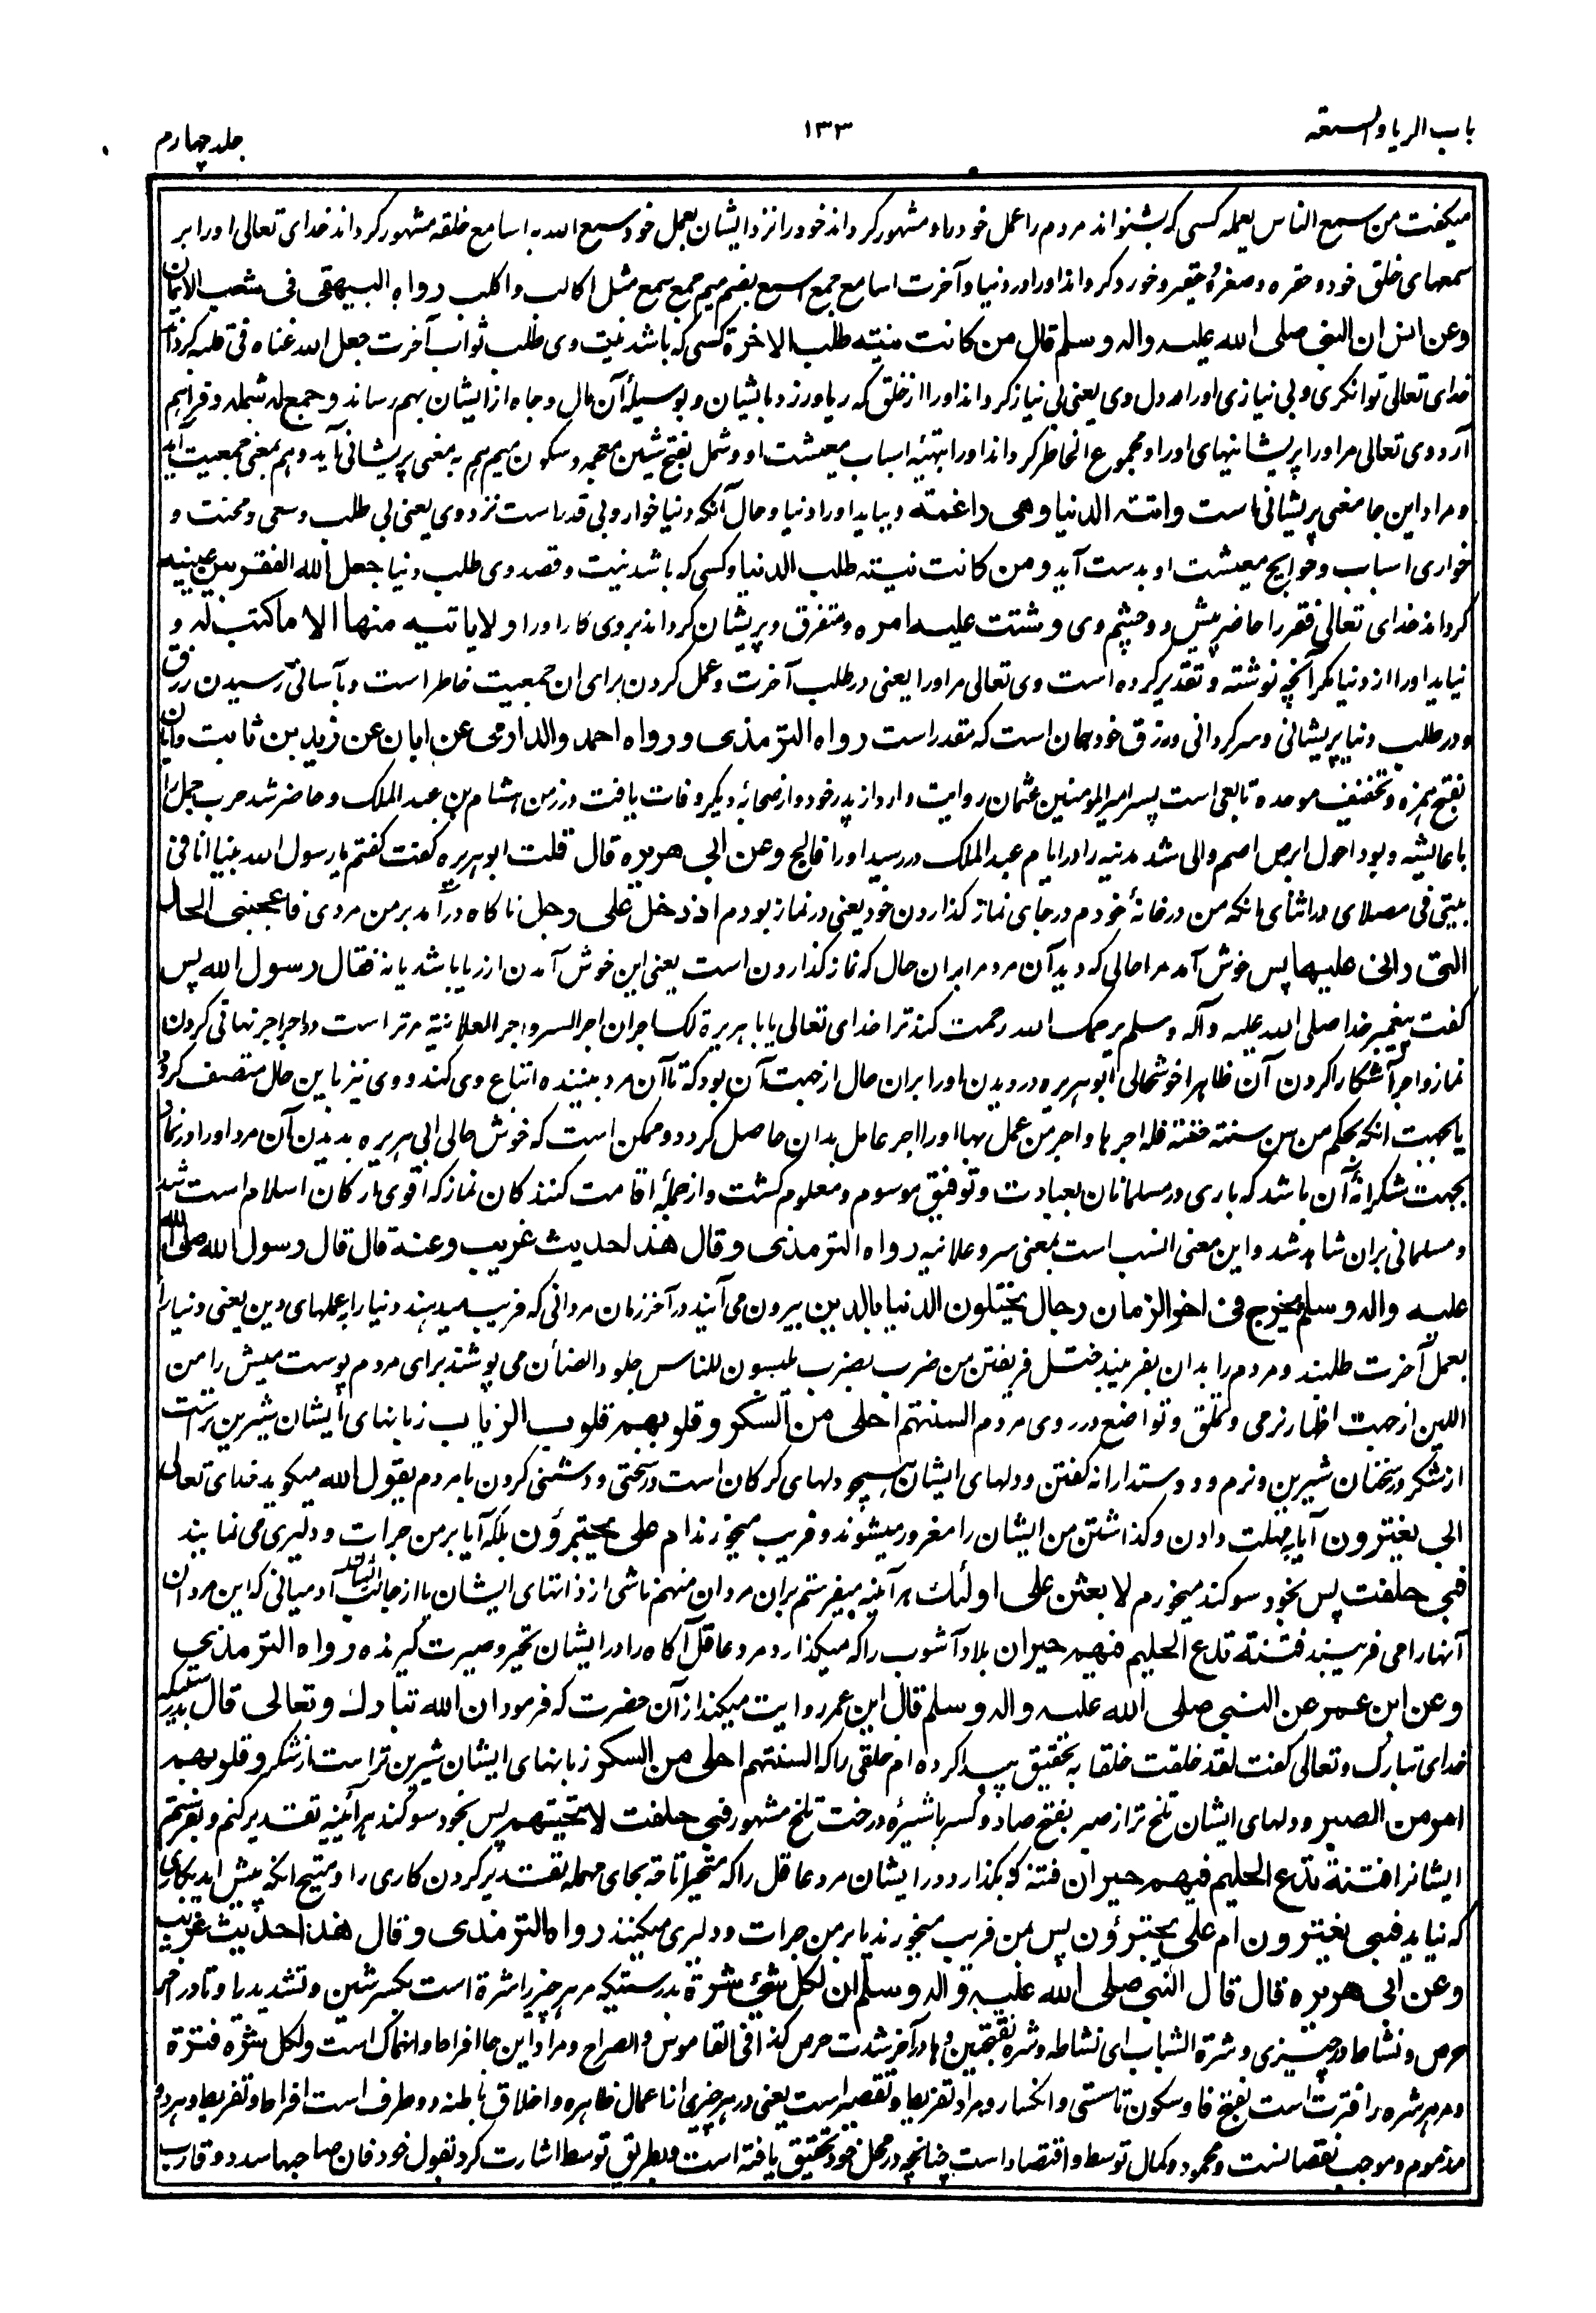 باب الریا والسمعه
۱۳۳
جلد چهارم
میکفت من سمع الناس بعمله کسی که بشنواند مردم را عمل خود را و مشهور کرداند خود را نزد ایشان بعمل خود سمع الله به اسامع خلقه مشهور کرداند خدای تعالی او را بر
سمعهای خلق خود و حقره و صغره و حقیر و خورد کرداند او را در دنیا و آخرت اسامع جمع اسمع بضم میم جمع سمع مثل اکالب و اکلب رواه البیهقی فی شعب الایمان
وعن انس ان النبی صلی الله علیه واله وسلم قال من کانت نیته طلب الاخرة کسی که باشد نیت وی طلب ثواب آخرت جعل الله غناه فی قلبه کرداند
خدای تعالی توانکری و بی نیازی او را در دل وی یعنی بی نیاز کرداند او را از خلق که ریا ورزد با ایشان و بوسیلهٔ آن مال و جاه از ایشان بهم رساند و جمع له شمله و فراهم
آرد وی تعالی مر او را پریشانیهای او را و مجموع الخاطر کرداند او را بتهیئه اسباب معیشت او و شمل بفتح شین معجمه و سکون میم هم به معنی پریشانی آید و هم بمعنی جمعیت آید
و مراد این جا معنی پریشانی است واتته الدنیا وهی داغمة و بیاید او را دنیا و حال آنکه دنیا خوار و بی قدر است نزد وی یعنی بی طلب و سعی و محنت و
خواری اسباب و حوایج معیشت او بدست آید ومن کانت نیته طلب الدنیا و کسی که باشد نیت و قصد وی طلب دنیا جعل الله الفقر بین عینیه
کرداند خدای تعالی فقر را حاضر پیش دو چشم وی وشتت علیه امره و متفرق و پریشان کرداند بر وی کار او را ولا یاتیه منها الا ما کتب له و
نیاید او را از دنیا مکر آنچه نوشته و تقدیر کرده است وی تعالی مر او را یعنی در طلب آخرت و عمل کردن برای ان جمعیت خاطر است و بآسانی رسیدن رزق
و در طلب دنیا پریشانی و سرکردانی و رزق خود همان است که مقدر است رواه الترمذی ورواه احمد والدارمی عن ابان عن زید بن ثابت وابان
بفتح همزه و تخفیف موحده تابعی است پسر امیر المومنین عثمان روایت دارد از پدر خود و از صحابهٔ دیکر وفات یافت در زمن هشام بن عبد الملک و حاضر شد حرب جمل را
با عایشه و بود احول ابرص اصم والی شد مدنیه را در ایام عبد الملک در رسید او را فالج وعن ابی هریرة قال قلت ابو هریره کفت کفتم یا رسول الله بینا انا فی
بیتی فی مصلای در اثنای انکه من در خانهٔ خودم در جای نماز کذاردن خود یعنی در نماز بودم اذ دخل علی رجل ناکاه در آمد بر من مردی فاعجبنی الحال
التی رانی علیها پس خوش آمد مرا حالی که دید آن مرد مرا بران حال که نماز کذاردن است یعنی این خوش آمدن از ریا باشد یا نه فقال رسول الله پس
کفت پیغمبر خدا صلی الله علیه وآله وسلم یرحمک الله رحمت کند ترا خدای تعالی یا ابا هریرة لک اجران اجر السر واجر العلانیة مر تر است دو اجر اجر نهانی کردن
نماز و اجر آشکارا کردن آن ظاهرا خوشحالی ابو هریره در دیدن او را بران حال از جهت آن بود که تا آن مرد بیننده اتباع وی کند و وی نیز باین حال متصف کردد
یا بجهت انکه بحکم من سن سنة حسنة فله اجرها و اجر من عمل بها او را اجر عامل بدان حاصل کردد و ممکن است که خوش حالی ابی هریره بدیدن آن مرد او را در نماز
بجهت شکرانهٔ آن باشد که باری در مسلمانان بعبادت و توفیق موسوم و معلوم کشت و از جملهٔ اقامت کنندکان نماز که اقوی ارکان اسلام است شد
و مسلمانی بران شاهد شد و این معنی انسب است بمعنی سر و علانیه رواه الترمذی وقال هذا حدیث غریب وعنه قال قال رسول الله صلی الله
علیه واله وسلم یخرج فی اخر الزمان رجال یختلون الدنیا بالدین بیرون می آیند در آخر زمان مردانی که فریب میدهند دنیا را به عملهای دین یعنی دنیا را
بعمل آخرت طلبند و مردم را بدان بفریبند ختل فریفتن من ضرب یضرب یلبسون للناس جلود الضأن می پوشند برای مردم پوست میش را من
اللین از جهت اظهار نرمی و تملق و تواضع در روی مردم السنتهم احلی من السکر وقلوبهم قلوب الذیاب زبانهای ایشان شیرین تر است
از شکر در سخنان شیرین و نرم و دوستدارانه کفتن و دلهای ایشان همچو دلهای کرکان است در سختی و دشمنی کردن با مردم یقول الله میکوید خدای تعالی
ابی یغترون آیا بمهلت دادن و کذاشتن من ایشان را مغرور میشوند و فریب میخورند ام علی یجترؤن بلکه آیا بر من جرات و دلیری می نمایند
فبی حلفت پس بخود سوکند میخورم لابعثن علی اولئک هر آئینه میفرستم بران مردان منهم ناشی از ذاتهای ایشان یا از جانب ایشان آدمیانی که این مردان
آنها را می فریبند فتنة تدع الحلیم فیهم حیران بلا و آشوب را که میکذارد مرد عاقل آکاه را در ایشان تحیر و حیرت کیرنده رواه الترمذی
وعن ابن عمر عن النبی صلی الله علیه واله وسلم قال ابن عمر روایت میکند از آن حضرت که فرمود ان الله تبارک وتعالی قال بدرستیکه
خدای تبارک و تعالی کفت لقد خلقت خلقا بتحقیق پیدا کرده ام خلقی را که السنتهم احلی من السکر زبانهای ایشان شیرین تر است از شکر وقلوبهم
امر من الصبر و دلهای ایشان تلخ تر از صبر بفتح صاد و کسر با شیرهٔ درخت تلخ مشهور فبی حلفت لاتیحنهم پس بخود سوکند هر آئینه تقدیر کنم و بفرستم
ایشانرا فتنة تدع الحلیم فیهم حیران فتنهٔ که بکذارد در ایشان مرد عاقل را که متحیر اتاحه بحای مهمله تقدیر کردن کاری را و متیح انکه پیش اید بکاری
که نیاید فبی یغترون ام علی یجترؤن پس من فریب میخورند یا بر من جرات و دلیری میکنند رواه الترمذی وقال هذا حدیث غریب
وعن ابی هریرة قال قال النبی صلی الله علیه واله وسلم ان لکل شئ شرة بدرستیکه مر هر چیز را شرة است بکسر شین و تشدید را و تا در آخر
حرص و نشاط در چیزی و شرة الشباب ای نشاطه و شره بفتحتین و ها در آخر شدت حرص کذا فی القاموس و الصراح و مراد این جا افراط و انهماک است ولکل شرة فترة
و مر هر شره را فترت است بفتح فا و سکون تا سستی و انکسار و مراد تفریط و تقصیر است یعنی در هر چیزی از اعمال ظاهره و اخلاق باطنه دو طرف است افراط و تفریط و هر دو
مذموم و موجب نقصانست و محمود و کمال توسط و اقتصاد است چنانچه در محل خود تحقیق یافته است و بطریق توسط اشارت کرد بقول خود فان صاحبها سدد وقارب